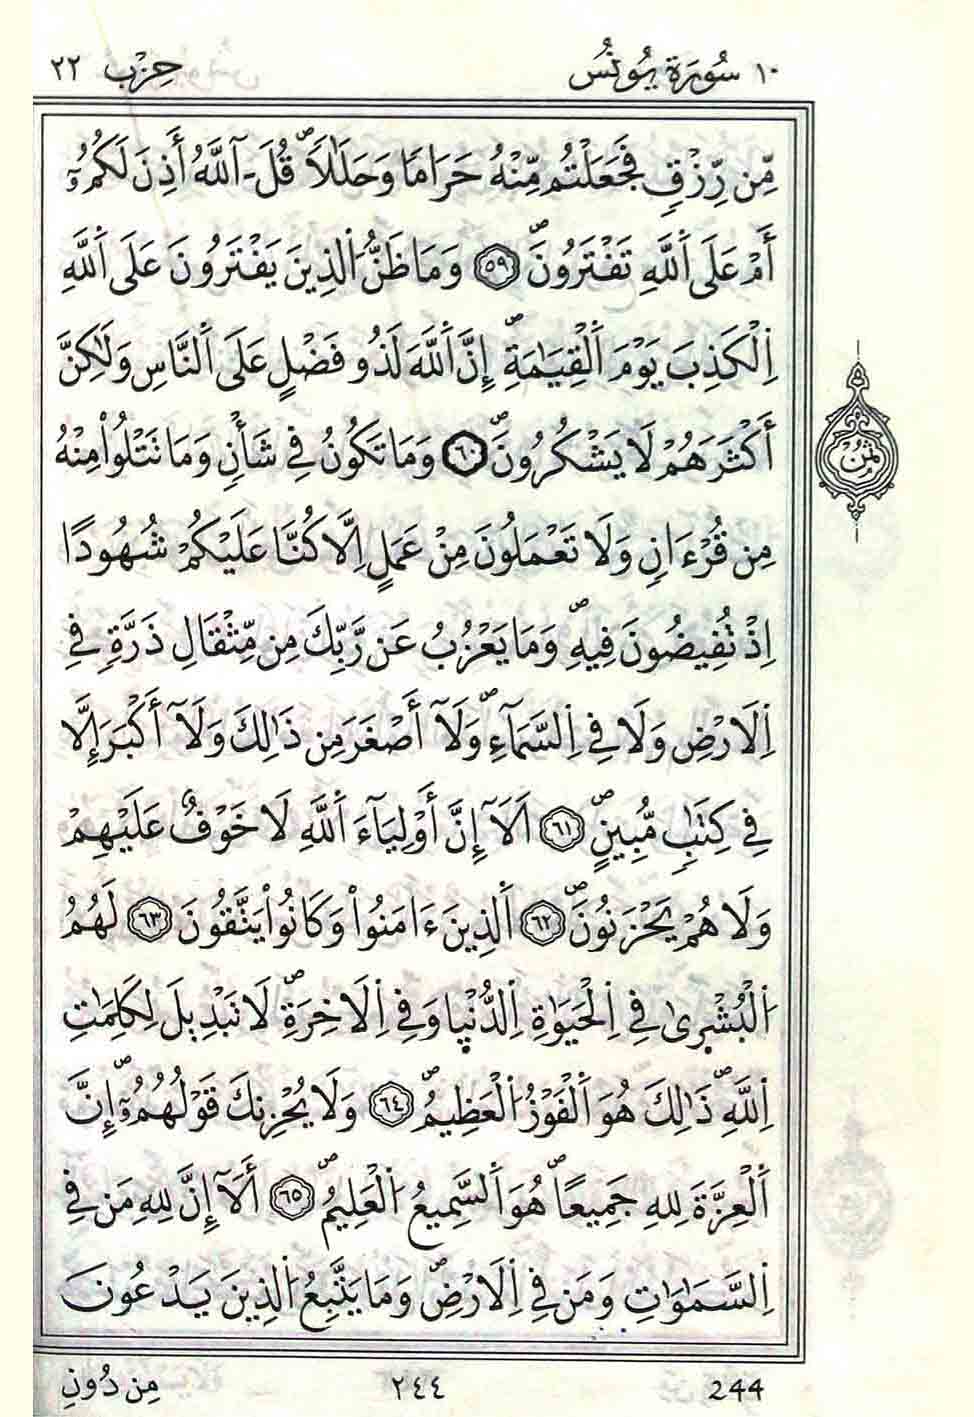 ١٠ سُورَة يُونُس حِزْب ٢٢
مِّن رِّزْقٍ فَجَعَلْتُم مِّنْهُ حَرَامًا وَحَلَٰلًا ۖ قُلَ ـ آللَّهُ أَذِنَ لَكُمُۥٓ
أَمْ عَلَى اَ۬للَّهِ تَفْتَرُونَ ۖ ٥٩ وَمَا ظَنُّ اُ۬لذِينَ يَفْتَرُونَ عَلَى اَ۬للَّهِ
اِ۬لْكَذِبَ يَوْمَ اَ۬لْقِيَٰمَةِ ۖ إِنَّ اَ۬للَّهَ لَذُو فَضْلٍ عَلَى اَ۬لنَّاسِ وَلَٰكِنَّ
أَكْثَرَهُمْ لَا يَشْكُرُونَ ۖ ٦٠ وَمَا تَكُونُ فِي شَأْنٍ وَمَا تَتْلُواْ مِنْهُ
ثُمُن
مِن قُرْءَانٍ وَلَا تَعْمَلُونَ مِنْ عَمَلٍ اِلَّا كُنَّا عَلَيْكُمْ شُهُودًا
اِذْ تُفِيضُونَ فِيهِ ۖ وَمَا يَعْزُبُ عَن رَّبِّكَ مِن مِّثْقَالِ ذَرَّةٍ فِي
اِ۬لَارْضِ وَلَا فِي اِ۬لسَّمَآءِ ۖ وَلَآ أَصْغَرَ مِن ذَٰلِكَ وَلَآ أَكْبَرَ إِلَّا
فِي كِتَٰبٍ مُّبِينٍ ۖ ٦١ اَلَآ إِنَّ أَوْلِيَآءَ اَ۬للَّهِ لَا خَوْفٌ عَلَيْهِمْ
وَلَا هُمْ يَحْزَنُونَ ۖ ٦٢ اَ۬لذِينَ ءَامَنُواْ وَكَانُواْ يَتَّقُونَ ٦٣ لَهُمُ
اُ۬لْبُشْر۪ىٰ فِي اِ۬لْحَيَوٰةِ اِ۬لدُّنْي۪ا وَفِي اِ۬لَاخِرَةِ ۖ لَا تَبْدِيلَ لِكَلِمَٰتِ
اِ۬للَّهِ ۖ ذَٰلِكَ هُوَ اَ۬لْفَوْزُ اُ۬لْعَظِيمُ ۖ ٦٤ وَلَا يُحْزِنكَ قَوْلُهُمُۥٓ ۖ إِنَّ
اَ۬لْعِزَّةَ لِلهِ جَمِيعًا ۖ هُوَ اَ۬لسَّمِيعُ اُ۬لْعَلِيمُ ۖ ٦٥ أَلَآ إِنَّ لِلهِ مَن فِي
اِ۬لسَّمَٰوَٰتِ وَمَن فِي اِ۬لَارْضِ ۖ وَمَا يَتَّبِعُ اُ۬لذِينَ يَدْعُونَ
244 ٢٤٤ مِن دُونِ